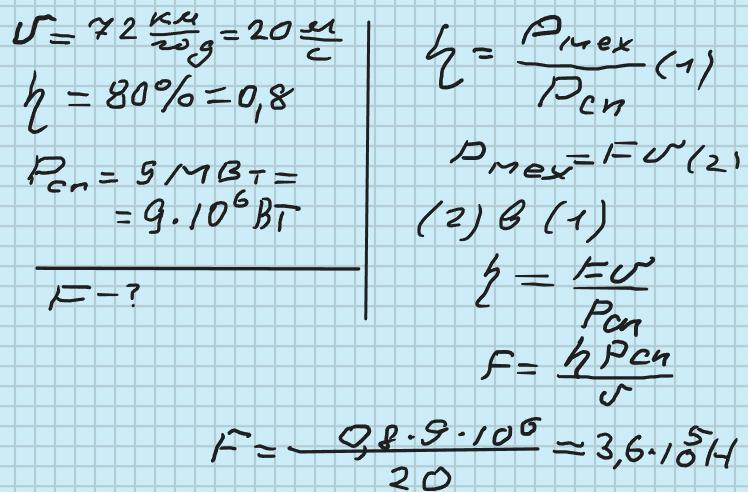 υ = 72 км/год = 20 м/с
η = 80% = 0,8
Pсп = 9 МВт =
= 9·10⁶ Вт
F - ?
η = Pмех/Pсп (1)
Pмех = Fυ (2)
(2) в (1)
η = Fυ/Pсп
F = ηPсп/υ
F = 0,8·9·10⁶/20 = 3,6·10⁵ Н